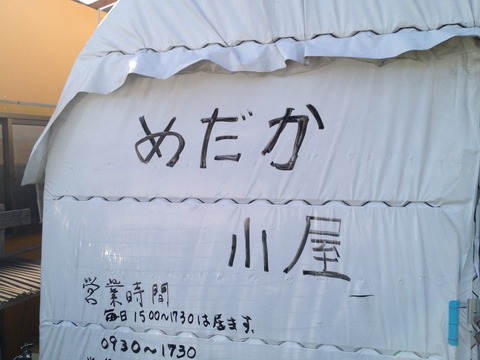 めだか
小屋
営業時間
毎日1500〜1730は居ます。
0930〜1730